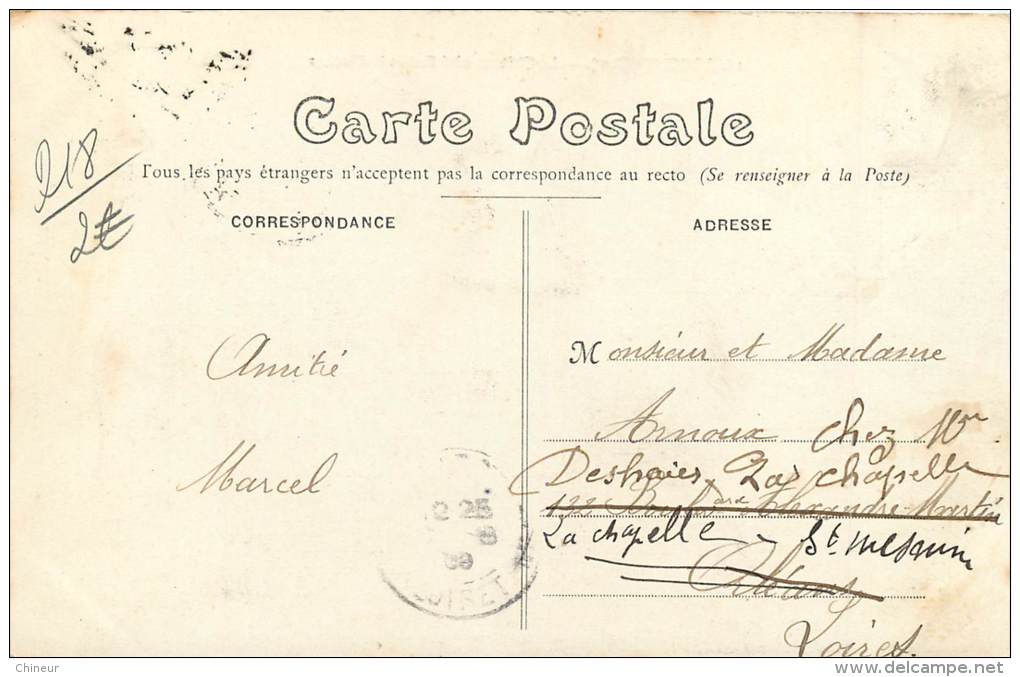 Carte Postale
Tous les pays étrangers n'acceptent pas la correspondance au recto (Se renseigner à la Poste)
218
2€
CORRESPONDANCE
ADRESSE
Amitié
Marcel
Monsieur et Madame
Arnoux chez Mme
Deshaies La chapelle
122 Boulevard Alexandre Martin
La chapelle St mesmin
Orléans
Loiret
25
8
09
LOIRET
Chineur
delcampe.net